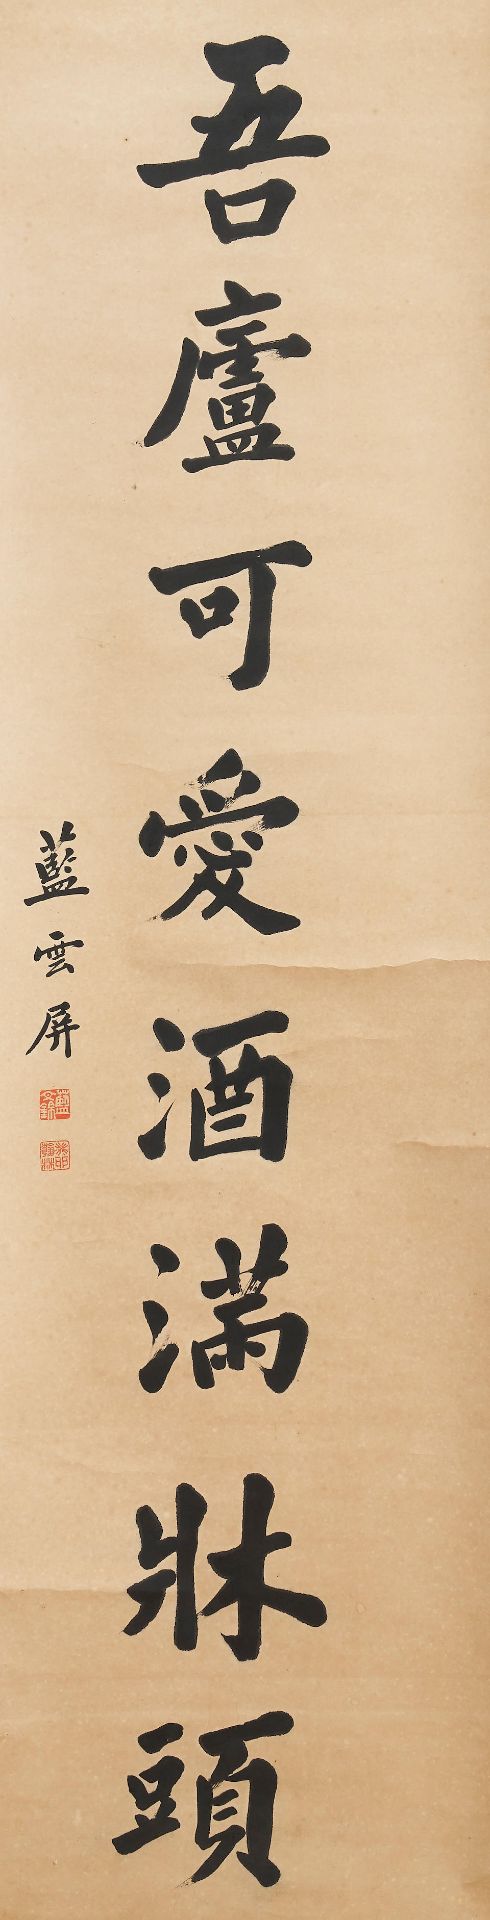 吾廬可愛酒滿牀頭
藍雲屏